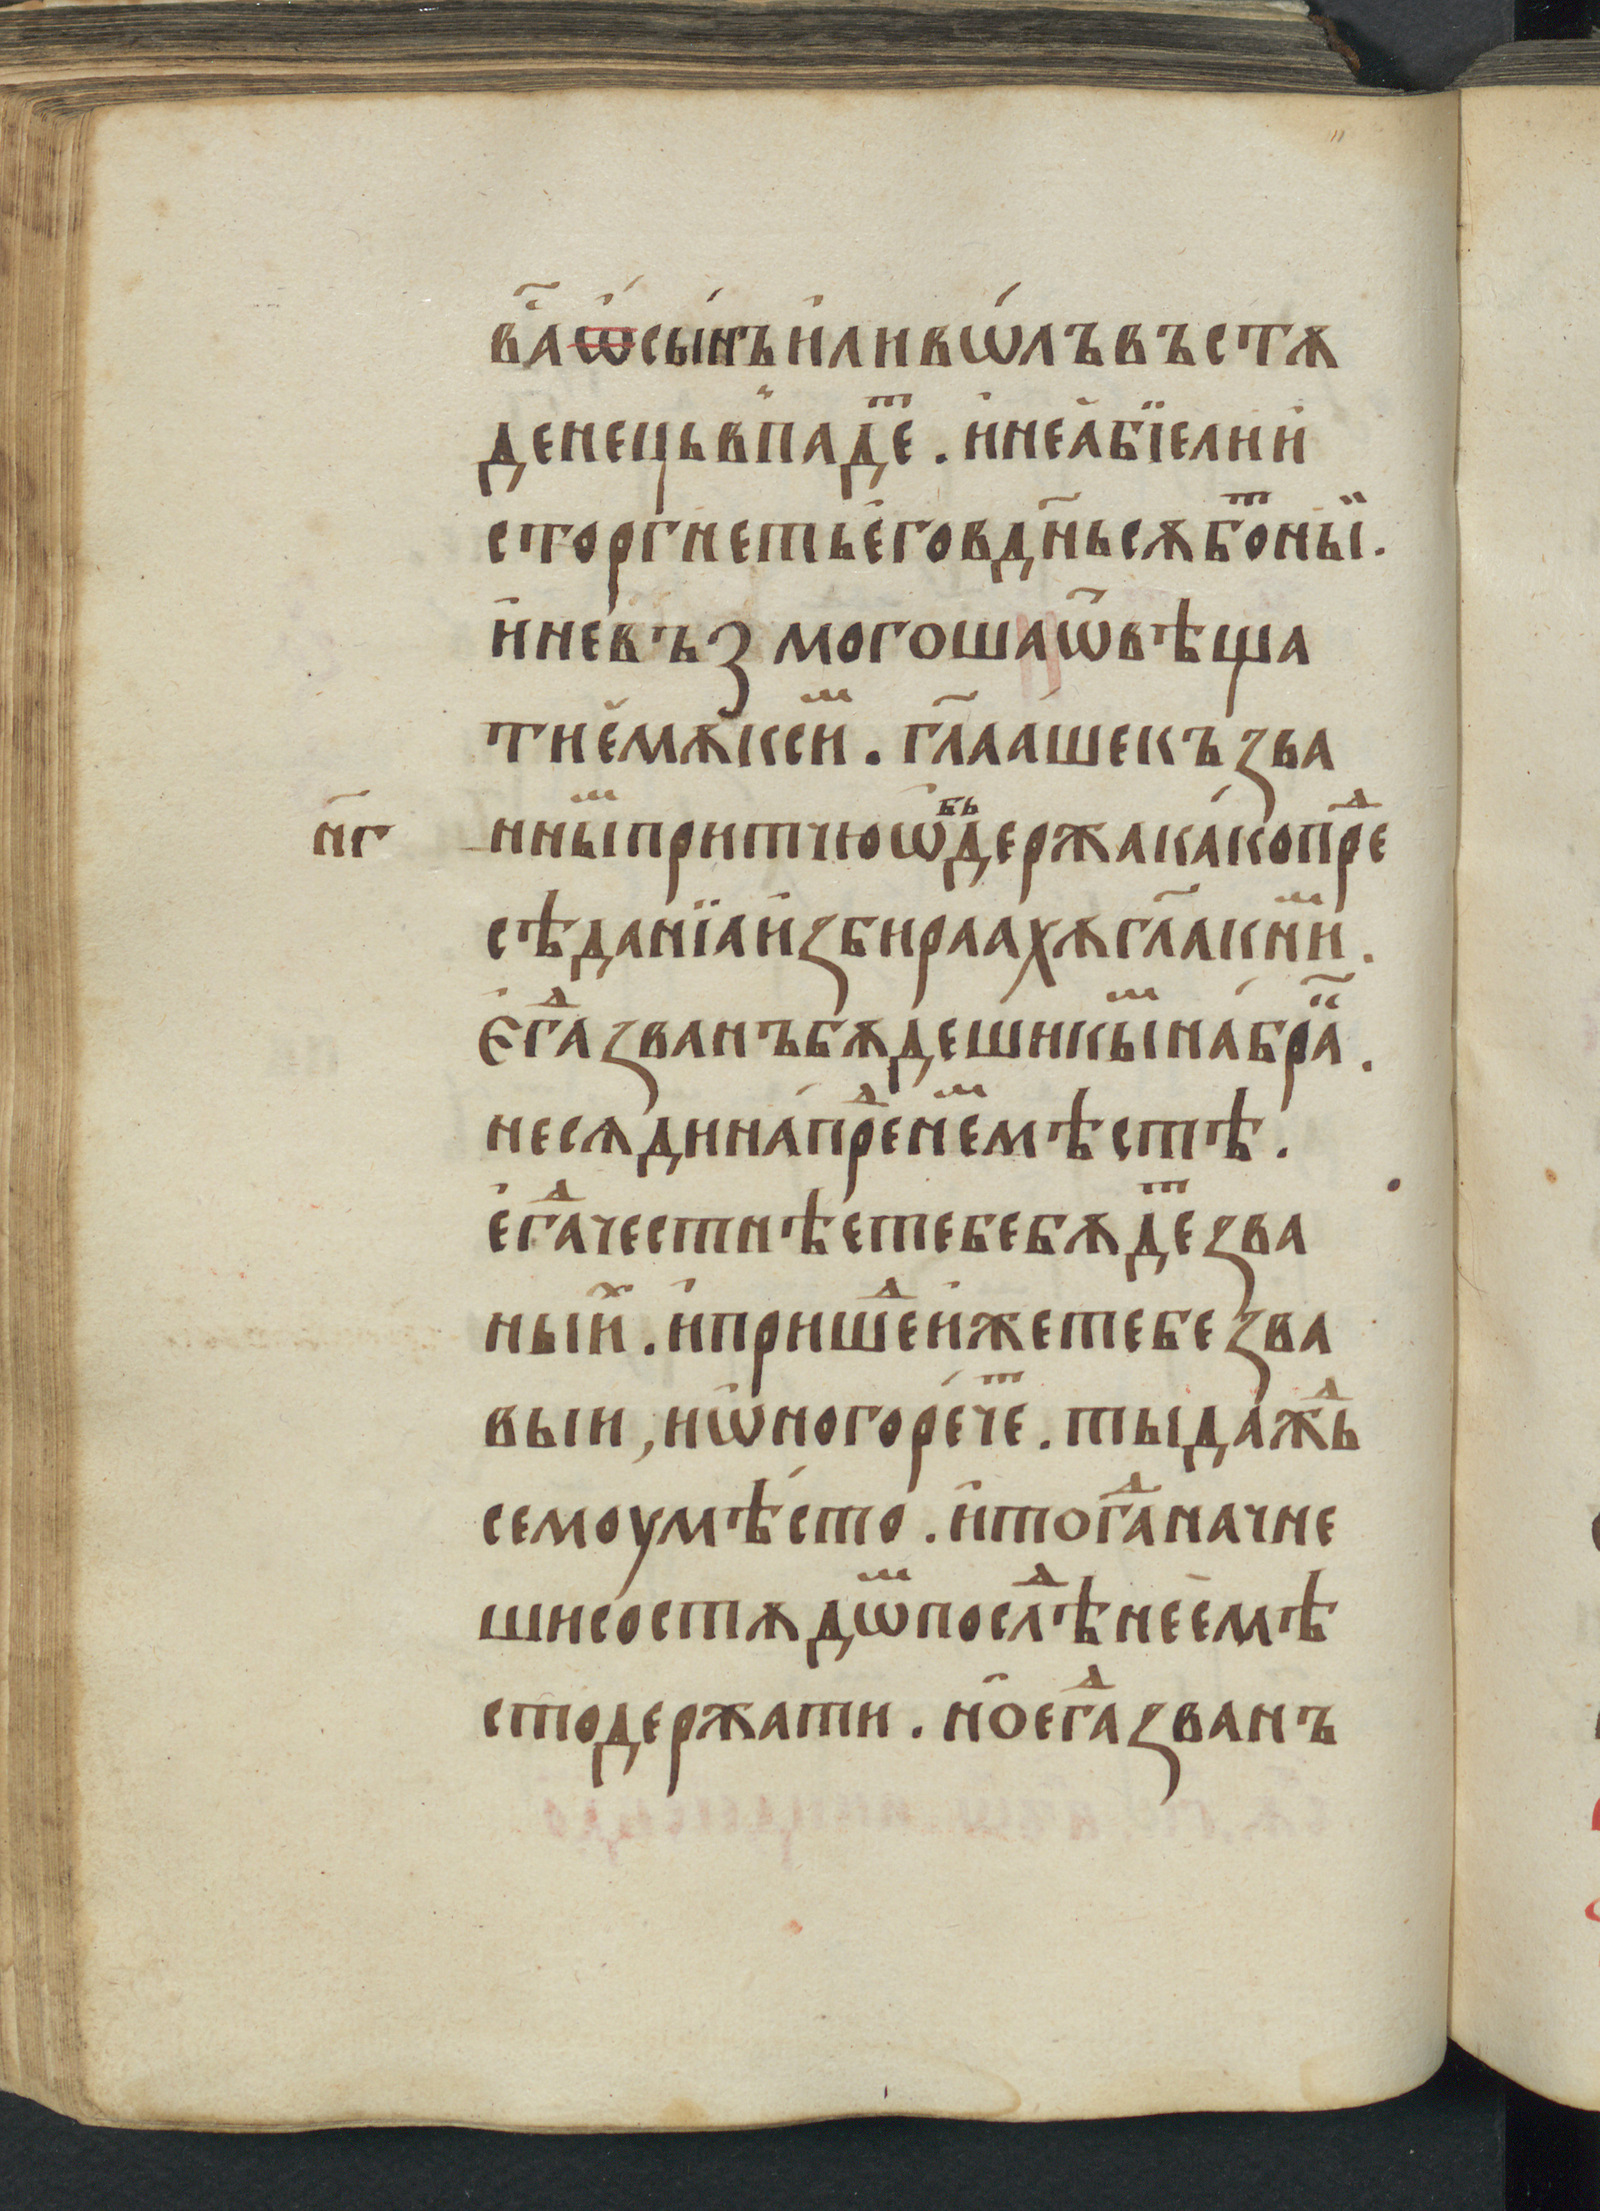 ва҃ ѿсы́нъ и҆ливѡ́лъ въстѫ
денець впаде҃ⷮ . и҆не а҆бїели и҆
сторгнеть е҆го вдн҃ь сѫбоⷮны̏ .
и҆ не въꙁмогоша ѿвѣща
ти е҆мѫ ксиⷨ . гл҃ааше къ ꙁва
нг҃
нныⷨ притчю ѡ҆бьдержа ка́ко преⷣ
сѣданїа и҆ꙁбираахѫ гл҃а книⷨ .
є҆гаⷣ ꙁванъ бѫдеши кыⷨ на́ браⷦ҇ .
несѫди на́ преⷣнеⷨ мѣстѣ .
е҆гаⷣ честнѣе тебе бѫдеⷮ ꙁва
ныиⷯ . и҆ пришеⷣ и҆же тебе ꙁва
выи , и҆ѡ҆ного ре́чеⷮ . ты даⷤⷣь
семоу мѣ́сто . и҆ тогаⷣ начне
ши состѫдѡⷨ послѣⷣнее мѣ
сто держати . но е҆гаⷣ ꙁванъ